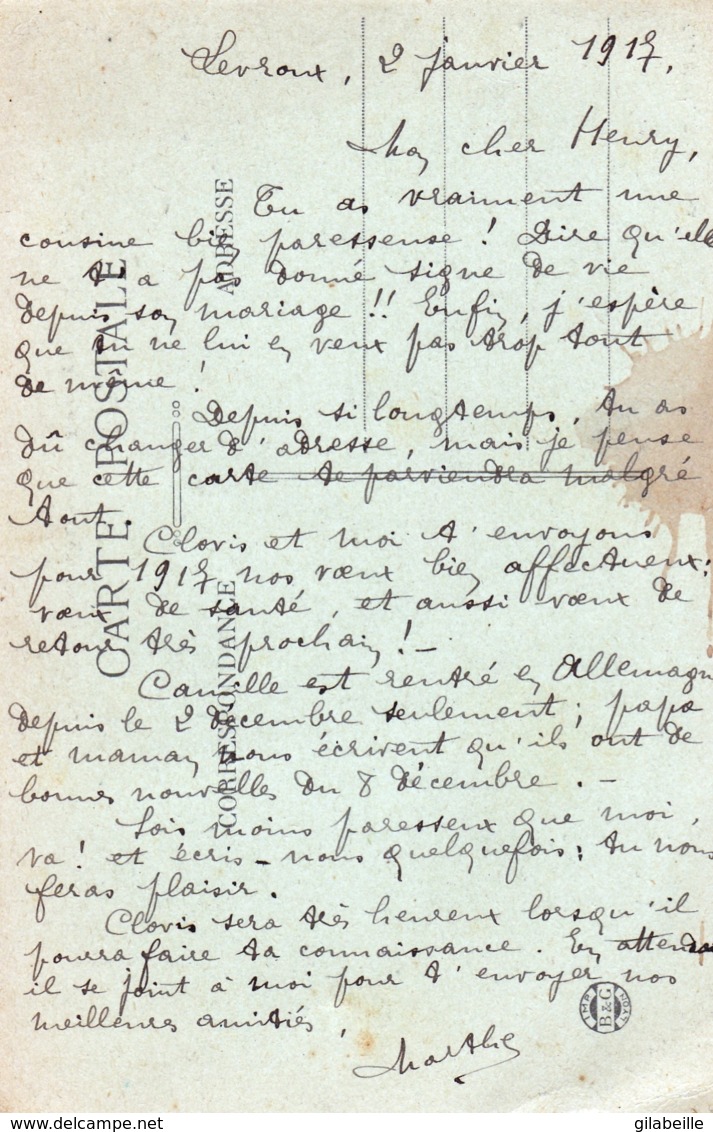 Levroux, 2 janvier 1917,
Mon cher Henry,
Tu as vraiment une
cousine bien paresseuse ! Dire qu'elle
ne t'a pas donné signe de vie
depuis son mariage !! Enfin, j'espère
que tu ne lui en veux pas trop tout
de même !
Depuis si longtemps, tu as
dû changer d'adresse, mais je pense
que cette carte te parviendra malgré
tout.
Clovis et moi t'envoyons
pour 1917 nos vœux bien affectueux :
vœux de santé, et aussi vœux de
retour très prochain ! –
Camille est rentré en Allemagne
depuis le 2 décembre seulement ; papa
et maman nous écrivent qu'ils ont de
bonnes nouvelles du 8 décembre. –
Sois moins paresseux que moi,
va ! et écris-nous quelquefois ; tu nous
feras plaisir.
Clovis sera très heureux lorsqu'il
pourra faire ta connaissance. En attendant
il se joint à moi pour t'envoyer nos
meilleures amitiés,
Marthe
CARTE POSTALE
CORRESPONDANCE
ADRESSE
IMP B&G NDAT
delcampe.net
gilabeille